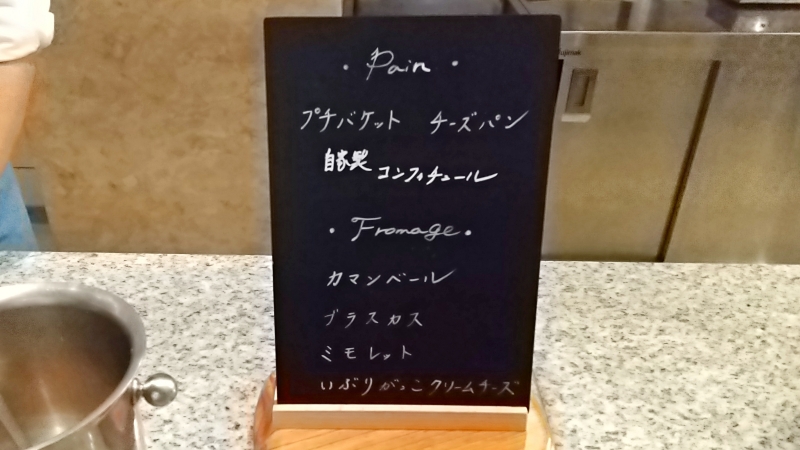 ・Pain・
プチバケット チーズパン
自家製 コンフィチュール
・Fromage・
カマンベール
ブラスカス
ミモレット
いぶりがっこクリームチーズ